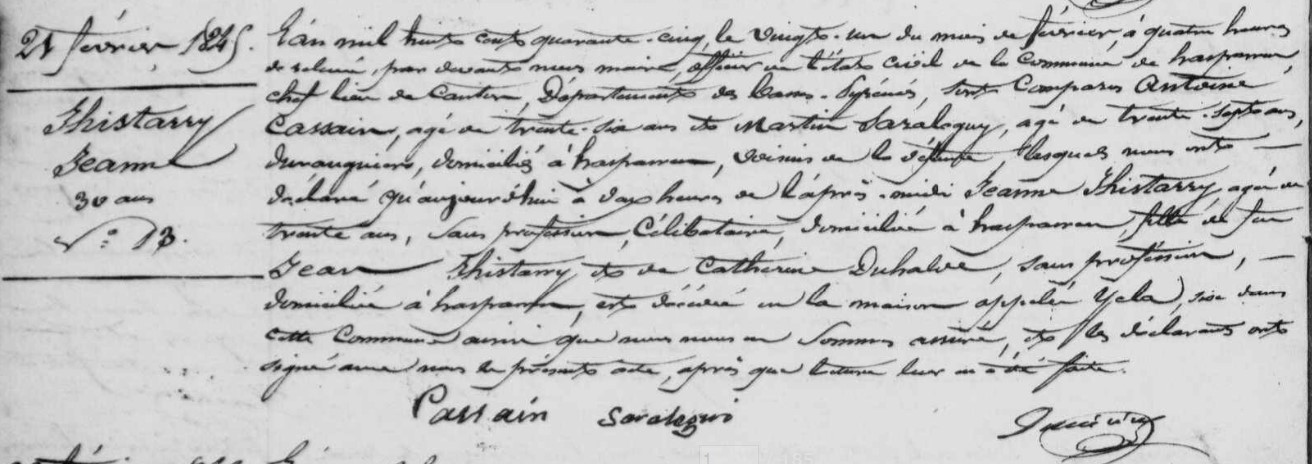 21 février 1845.
Thistarry
Jeanne
30 ans
N.° 13.
L'an mil huit cent quarante-cinq, le vingt-un du mois de février, à quatre heures
de relevée, par devant nous maire, officier de l'état civil de la commune de hasparren,
chef lieu de Canton, Département des Basses-Pyrénées, sont Comparus Antoine
Cassain, agé de trente-six ans et Martin Saraleguy, agé de trente-sept ans,
domiciliés à hasparren, voisins de la défunte, lesquels nous ont
déclaré qu'aujourd'hui à deux heures de l'après-midi Jeanne Thistarry, agée de
trente ans, sans profession, Célibataire, domiciliée à hasparren, fille de feu
Jean Thistarry et de Catherine Duhalde, sans profession,
domiciliée à hasparren, est décédée en la maison appelée Ycla, sise dans
cette Commune ainsi que nous nous en sommes assuré, et les déclarants ont
signé avec nous le présent acte, après que lecture leur en a été faite.
Cassain Saralegui